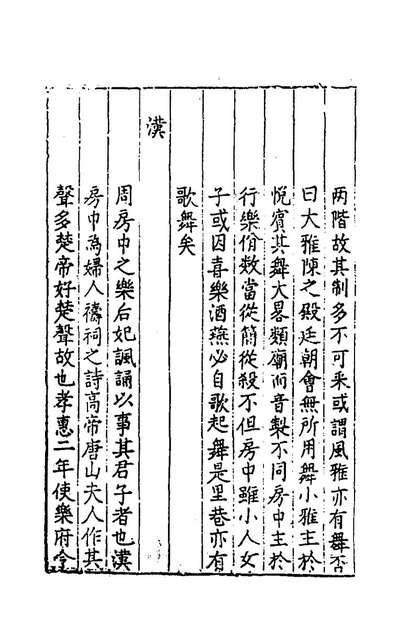 两階故其制多不可采或謂風雅亦有舞否
曰大雅陳之殿廷朝會無所用舞小雅主於
悅賓其舞大畧類廟而音製不同房中主於
行樂佾數當從簡從殺不但房中雖小人女
子或因喜樂酒燕必自歌起舞是里巷亦有
歌舞矣
漢
周房中之樂后妃諷誦以事其君子者也漢
房中為婦人禱祠之詩高帝唐山夫人作其
聲多楚帝好楚聲故也孝惠二年使樂府令